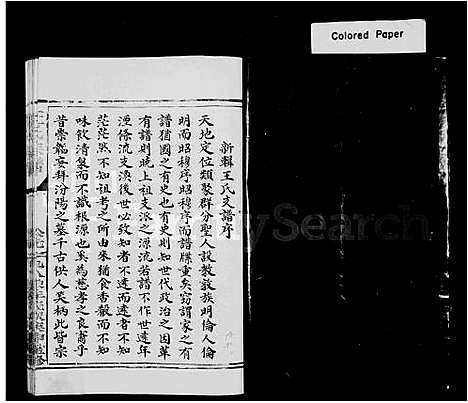 Colored Paper
新輯王氏支譜序
天地定位類聚群分聖人設教敦族明倫人倫
明而昭穆序昭穆序而譜牒重矣竊謂家之有
譜猶國之有史也有史則知世代政治之因革
有譜則晓上祖支派之源流若譜不作世遠年
湮條流支渙後世必致知者不遠而遠者不知
茫茫然不知祖考之所由來猶食香穀而不知
味飲清泉而不識根源也奚為慈孝之良裔乎
昔崇韜妄拜汾陽之墓千古供人笑柄此皆宗